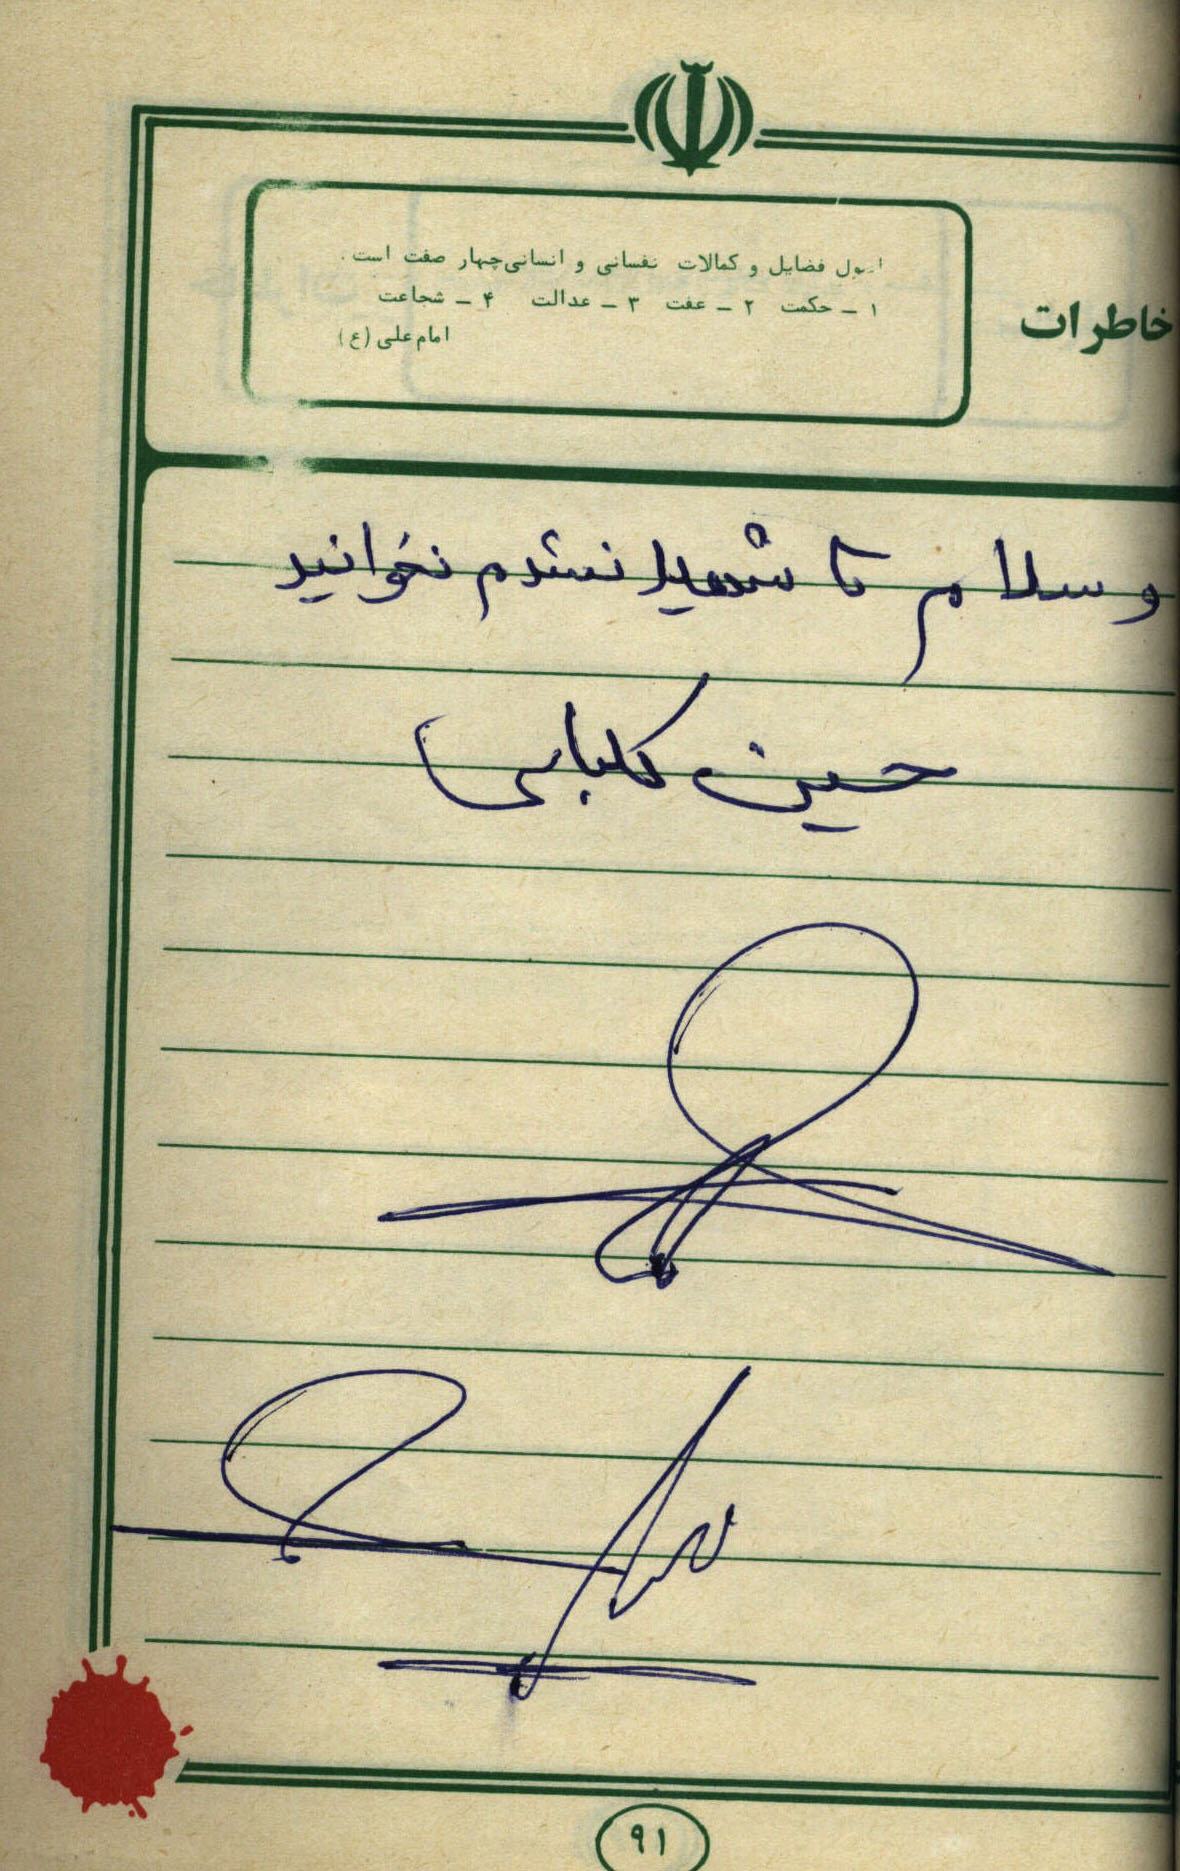 خاطرات
اصول فضایل و کمالات نفسانی و انسانی چهار صفت است.
۱ ــ حکمت ۲ ــ عفت ۳ ــ عدالت ۴ ــ شجاعت
امام علی (ع)
و سلام تا شهید نشدم نخوانید
حسین کلباسی
۹۱